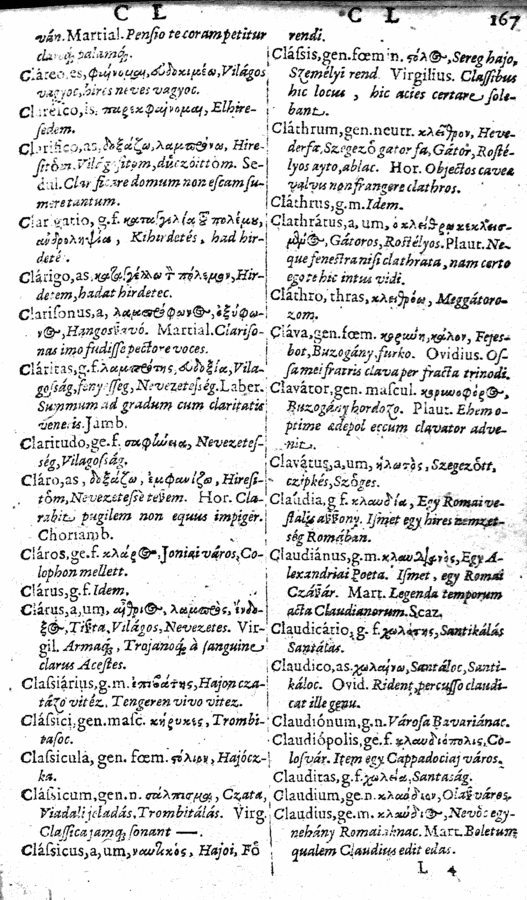 C L
C L 167
ván. Martial. Pensio te coram petitur
claraq́; palamq́;.
Clāreo, es, φαίνομαι, ἐυδοκιμέω, Világos
vagyoc, híres neves vagyoc.
Claresco, is, παρεκφαίνομαι, Elhire-
sedem.
Clarifico, as, δοξάζω, λαμπρύνω, Hire-
sitöm. Világositom, düczöittöm. Se-
dul. Clarificare domum non escam su-
meretantum.
Clarigatio, g. f. καταγγελία τȣ͂ πολέμου,
ἀνδροληψία, Kihirdetés, had hir-
deté.
Clárigo, as, καταγγέλλω τ πόλεμον, Hir-
detem, hadat hirdetec.
Clarisonus, a, λαμπρόφωνος, ὀξύφω-
νος, Hangos Martial. Clariso-
nas imo fudisse pectore voces.
Cláritas, g. f. λαμπρότης, ἐυδοξία, Vila-
gosság, fényesség, Nevezetesség. Laber.
Summum ad gradum cum claritatis
veneris. Jamb.
Claritudo, ge. f. σαφήνεια, Nevezetes-
ség, Vilagosság.
Cláro, as, δοξάζω, ἐμφανίζω, Hiresi-
töm, Nevezetessé teszem. Hor. Cla-
rabit pugilem non equus impiger.
Choriamb.
Cláros, ge. f. κλάρος. Joniai város, Co-
lophon mellett.
Clárus, g. f. Idem.
Clárus, a, um, λαμπρὸς, ἔνδο-
ξος, Tiszta, Világos, Nevezetes. Vir-
gil. Armaq́;, Trojanoq́; à sanguine
clarus Acestes.
Classiárius, g. m. ἐπιβάτης, Hajon cza-
tázo vitéz. Tengeren vivo vitez.
Clássici, gen. masc. κήρυκες, Trombi-
tasoc.
Classicula, gen. fœm. στόλιον, Hajócz-
ka.
Clássicum, gen. n. σάλπισμα, Czata,
Viadali jeladás, Trombitálás. Virg.
Classica jamq́; sonant —.
Clássicus, a, um, ναυτικὸς, Hajoi, Fö
rendi.
Clássis, gen. fœmin. στόλος, Sereg hajo,
Személyi rend. Virgilius. Classibus
hic locus, hic acies certare sole-
bant.
Cláthrum, gen. neutr. κλεῖθρον, Heve-
derfa, Szegezö gator fa, Gátor, Rosté-
lyos ayto, ablac. Hor. Objectos caveæ
valvus non frangere clathros.
Cláthrus, g. m. Idem.
Clathrátus, a, um, ὁ κλειθρωκεκλεισ-
μένος, Gátoros, Rostélyos. Plaut. Ne-
que fenestra nisi clathrata, nam certo
ego te hic intus vidi.
Cláthro, thras, κλειθρόω, Meggátoro-
zom.
Cláva, gen. fœm. κορώνη, κάλον, Fejes-
bot, Buzogány, furko. Ovidius. Os-
sa mei fratris clava per fracta trinodi.
Clavátor, gen. mascul. κορωνοφόρος,
Buzogány hordozo. Plaut. Ehem o-
ptime ædepol eccum clavator adve-
nit.
Clavátus, a, um, ἡλωτὸς, Szegezött,
czipkés, Szöges.
Claudia, g. f. κλαυδία, Egy Romai ve-
stalis aszszony. Ismet egy hires nemzet-
ség Romában.
Claudiánus, g. m. κλαυδιανὸς, Egy A-
lexandriai Poeta. Ismet, egy Romai
Czászár. Mart. Legenda temporum
acta Claudianorum. Scaz.
Claudicátio, g. f. χωλότης, Santikálás
Santátas.
Claudico, as, χωλαίνω, Santáloc, Santi-
káloc. Ovid. Rident, percusso claudi-
cat ille genu.
Claudiónum, g. n. Városa Bavariánac.
Claudiópolis, ge. f. κλαυδιόπολις, Co-
losvár. Item egy Cappadociaj város.
Clauditas, g. f. χωλεία, Santaság.
Claudium, ge. n. κλαύδιον, Olasz város.
Claudius, ge. m. κλαύδιος, Nevöc egy-
nehány Romaiaknac. Mart. Boletum
qualem Claudius edit edas.
L 4